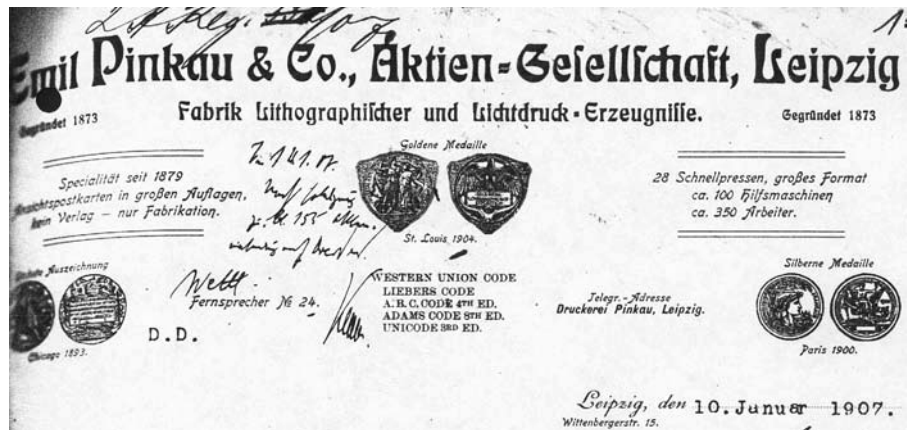 Emil Pinkau & Co., Aktien-Gesellschaft, Leipzig
Fabrik Lithographischer und Lichtdruck-Erzeugnisse.
Gegründet 1873
Gegründet 1873
Specialität seit 1879
Ansichtspostkarten in großen Auflagen,
kein Verlag – nur Fabrikation.
Goldene Medaille
St. Louis, 1904.
28 Schnellpressen, großes Format
ca. 100 Hilfsmaschinen
ca. 350 Arbeiter.
Auszeichnung
Chicago 1893.
Fernsprecher № 24.
D.D.
WESTERN UNION CODE
LIEBERS CODE
A.B.C. CODE 4TH ED.
ADAMS CODE 8TH ED.
UNICODE 3RD ED.
Telegr.-Adresse
Druckerei Pinkau, Leipzig.
Silberne Medaille
Paris 1900.
Leipzig, den 10. Januar 1907.
Wittenbergerstr. 15.